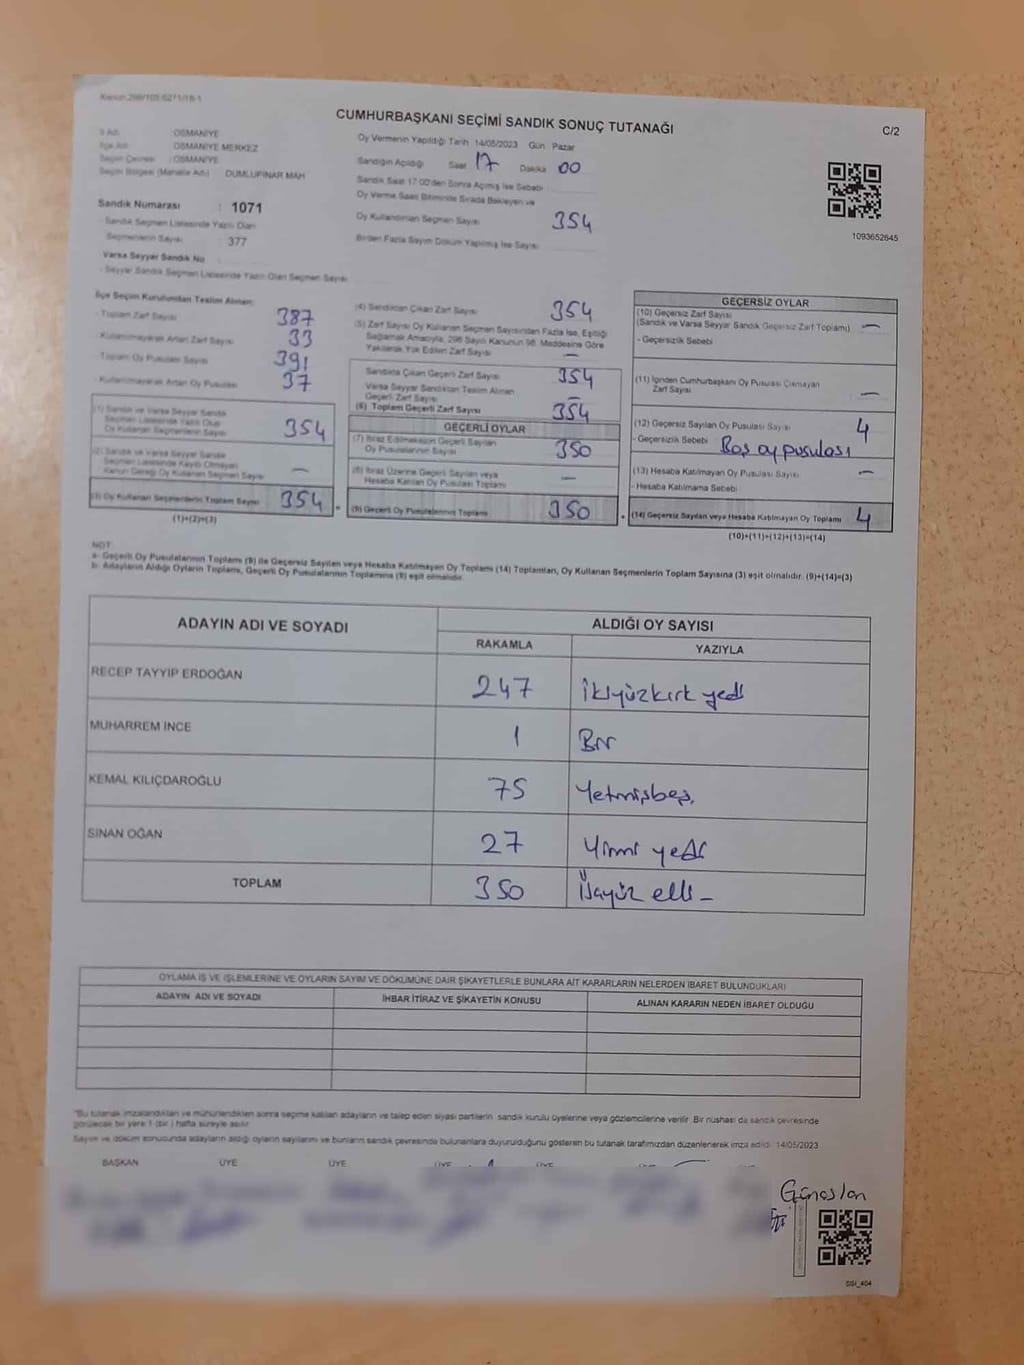 Kanun:298/105/6271/18-1
CUMHURBAŞKANI SEÇİMİ SANDIK SONUÇ TUTANAĞI
C/2
İl Adı : OSMANİYE
İlçe Adı : OSMANİYE MERKEZ
Seçim Çevresi : OSMANİYE
Seçim Bölgesi (Mahalle Adı) : DUMLUPINAR MAH
Sandık Numarası : 1071
- Sandık Seçmen Listesinde Yazılı Olan
Seçmenlerin Sayısı : 377
Varsa Seyyar Sandık No
- Seyyar Sandık Seçmen Listesinde Yazılı Olan Seçmen Sayısı
Oy Vermenin Yapıldığı Tarih 14/05/2023 Gün Pazar
Sandığın Açıldığı Saat 17 Dakika 00
Sandık Saat 17:00'den Sonra Açılmış İse Sebebi
Oy Verme Saati Bitiminde Sırada Bekleyen ve
Oy Kullandırılan Seçmen Sayısı 354
Birden Fazla Sayım Döküm Yapılmış İse Sayısı
1093652645
İlçe Seçim Kurulundan Teslim Alınan:
- Toplam Zarf Sayısı 387
- Kullanılmayarak Artan Zarf Sayısı 33
- Toplam Oy Pusulası Sayısı 391
- Kullanılmayarak Artan Oy Pusulası 37
(1) Sandık ve Varsa Seyyar Sandık
Seçmen Listesinde Yazılı Olup
Oy Kullanan Seçmenlerin Sayısı 354
(2) Sandık ve Varsa Seyyar Sandık
Seçmen Listesinde Kayıtlı Olmayan
Kanun Gereği Oy Kullanan Seçmen Sayısı —
(3) Oy Kullanan Seçmenlerin Toplam Sayısı 354
(1)+(2)=(3)
(4) Sandıktan Çıkan Zarf Sayısı 354
(5) Zarf Sayısı Oy Kullanan Seçmen Sayısından Fazla İse, Eşitliği
Sağlamak Amacıyla, 298 Sayılı Kanunun 98. Maddesine Göre
Yakılarak Yok Edilen Zarf Sayısı —
Sandıkta Çıkan Geçerli Zarf Sayısı 354
Varsa Seyyar Sandıktan Teslim Alınan
Geçerli Zarf Sayısı —
(6) Toplam Geçerli Zarf Sayısı 354
GEÇERLİ OYLAR
(7) İtiraz Edilmeksizin Geçerli Sayılan
Oy Pusulalarının Sayısı 350
(8) İtiraz Üzerine Geçerli Sayılan veya
Hesaba Katılan Oy Pusulası Toplamı —
(9) Geçerli Oy Pusulalarının Toplamı 350
GEÇERSİZ OYLAR
(10) Geçersiz Zarf Sayısı
(Sandık ve Varsa Seyyar Sandık Geçersiz Zarf Toplamı) —
- Geçersizlik Sebebi
(11) İçinden Cumhurbaşkanı Oy Pusulası Çıkmayan
Zarf Sayısı —
(12) Geçersiz Sayılan Oy Pusulası Sayısı 4
- Geçersizlik Sebebi Boş oy pusulası
(13) Hesaba Katılmayan Oy Pusulası Sayısı —
- Hesaba Katılmama Sebebi
(14) Geçersiz Sayılan veya Hesaba Katılmayan Oy Toplamı 4
(10)+(11)+(12)+(13)=(14)
NOT:
a- Geçerli Oy Pusulalarının Toplamı (9) ile Geçersiz Sayılan veya Hesaba Katılmayan Oy Toplamı (14) Toplamları, Oy Kullanan Seçmenlerin Toplam Sayısına (3) eşit olmalıdır. (9)+(14)=(3)
b- Adayların Aldığı Oyların Toplamı, Geçerli Oy Pusulalarının Toplamına (9) eşit olmalıdır.
ADAYIN ADI VE SOYADI
ALDIĞI OY SAYISI
RAKAMLA YAZIYLA
RECEP TAYYİP ERDOĞAN 247 İkiyüzkırk yedi
MUHARREM İNCE 1 Bir
KEMAL KILIÇDAROĞLU 75 Yetmişbeş
SİNAN OĞAN 27 Yirmi yedi
TOPLAM 350 Üçyüz elli –
OYLAMA İŞ VE İŞLEMLERİNE VE OYLARIN SAYIM VE DÖKÜMÜNE DAİR ŞİKAYETLERLE BUNLARA AİT KARARLARIN NELERDEN İBARET BULUNDUKLARI
ADAYIN ADI VE SOYADI İHBAR İTİRAZ VE ŞİKAYETİN KONUSU ALINAN KARARIN NEDEN İBARET OLDUĞU
"Bu tutanak imzalandıktan ve mühürlendikten sonra seçime katılan adayların ve talep eden siyasi partilerin sandık kurulu üyelerine veya gözlemcilerine verilir. Bir nüshası da sandık çevresinde
görülecek bir yere 1 (bir) hafta süreyle asılır.
Sayım ve döküm sonucunda adayların aldığı oyların sayılarını ve bunların sandık çevresinde bulunanlara duyurulduğunu gösteren bu tutanak tarafımızdan düzenlenerek imza edildi. 14/05/2023
BAŞKAN ÜYE ÜYE ÜYE ÜYE
Günaslan
SSİ_404